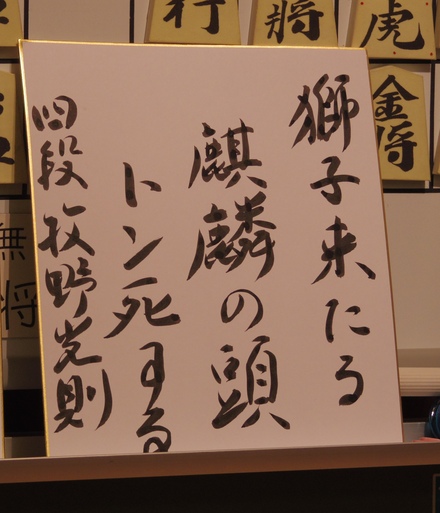 獅子来たる
麒麟の頭
トン死する
四段 牧野光則
行
将
虎
金将
無
将